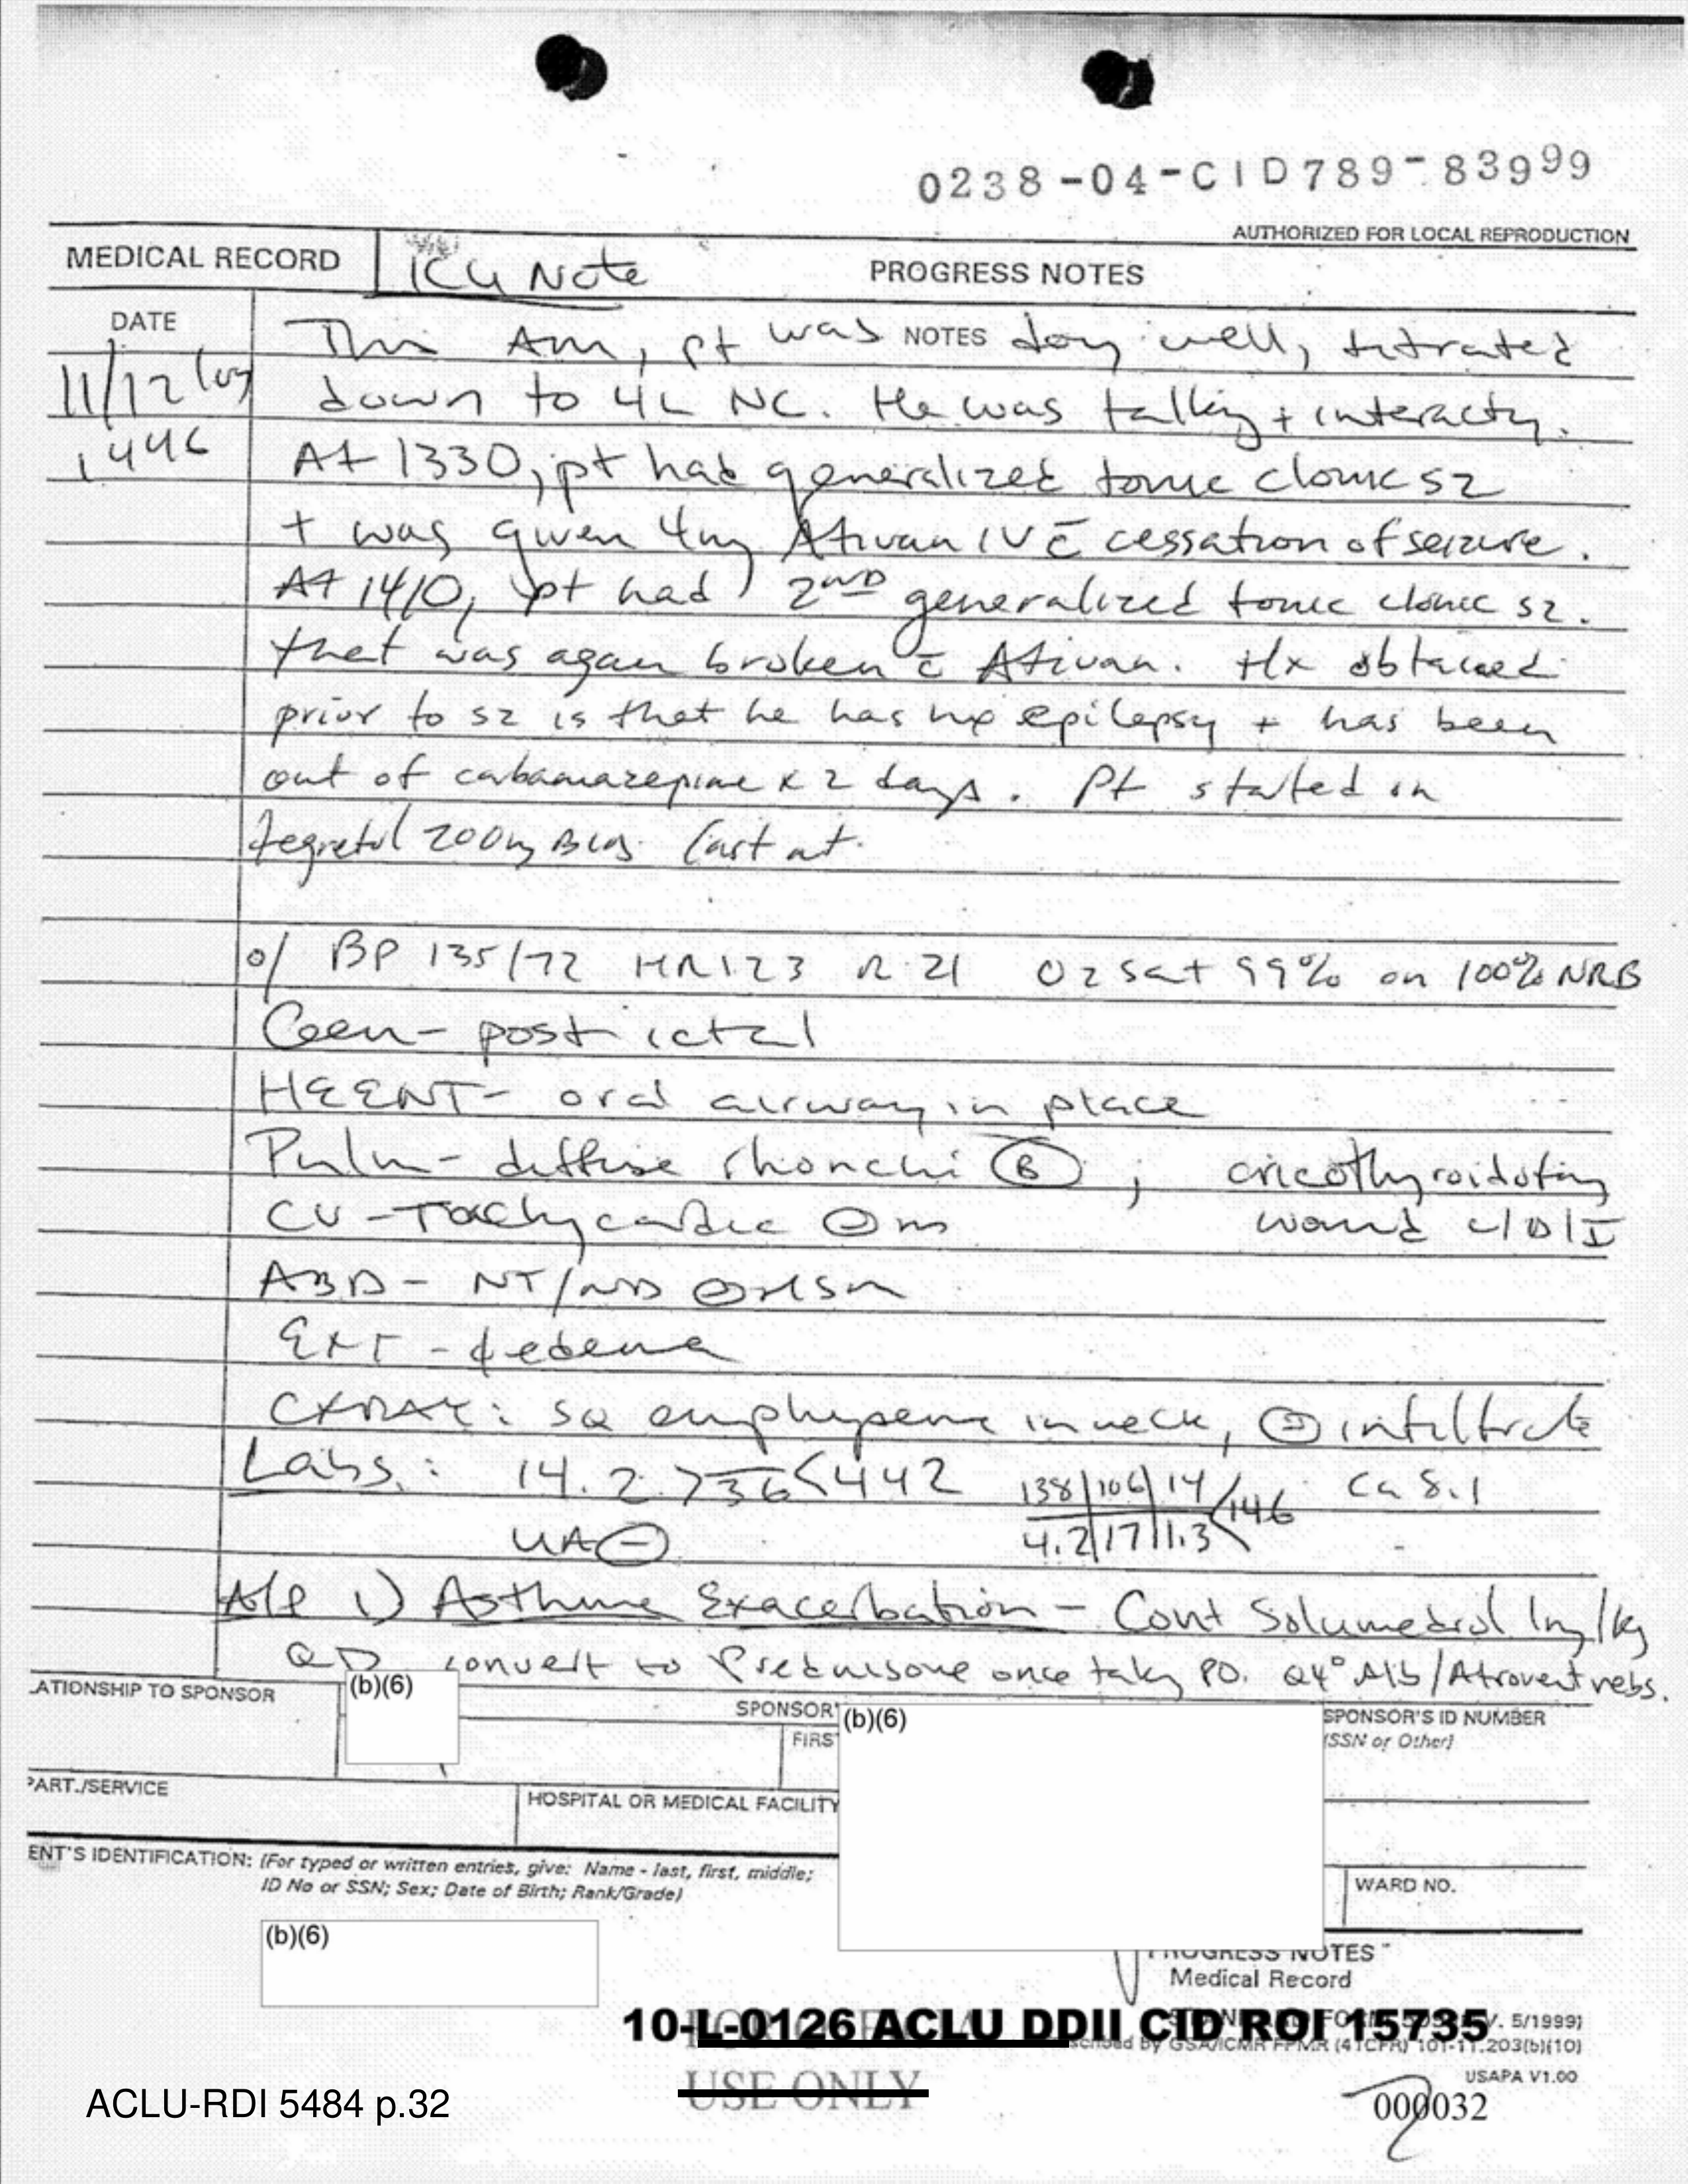 0238-04-CID789-83999
AUTHORIZED FOR LOCAL REPRODUCTION
MEDICAL RECORD
ICU Note
PROGRESS NOTES
DATE
NOTES
11/12
1446
This AM, pt was doing well, titrated
down to 4L NC. He was talking + interacting.
At 1330, pt had generalized tonic clonic sz
+ was given 4mg Ativan IV c̄ cessation of seizure.
At 1410, pt had 2ND generalized tonic clonic sz.
that was again broken c̄ Ativan. Hx obtained
prior to sz is that he has hx epilepsy + has been
out of carbamazepine x 2 days. Pt started on
tegretol 200mg BID. last
o/ BP 135/72 HR 123 R 21 O2 sat 99% on 100% NRB
Gen- post ictal
HEENT- oral airway in place
Pulm- diffuse rhonchi Ⓑ; cricothyroidotomy
wound c/D/I
CV- Tachycardic ⊖ m
ABD- NT/ND ⊖ HSM
EXT - ∅ edema
CXRAY: SQ emphysema in neck, ⊖ infiltrate
Labs: 14.2 > 36 < 442 138|106|14 / 146 Ca 8.1
4.2|17|1.3
UA ⊖
A/P 1) Asthma Exacerbation - Cont Solumedrol 1mg/kg
QD convert to Prednisone once taking PO. Q4° Alb/Atrovent nebs.
ATIONSHIP TO SPONSOR
(b)(6)
SPONSOR'
(b)(6)
SPONSOR'S ID NUMBER
(SSN or Other)
FIRS
PART./SERVICE
HOSPITAL OR MEDICAL FACILITY
ENT'S IDENTIFICATION: (For typed or written entries, give: Name - last, first, middle;
ID No or SSN; Sex; Date of Birth; Rank/Grade)
WARD NO.
(b)(6)
PROGRESS NOTES
Medical Record
10-L-0126 ACLU DDII CID ROI 15735
V. 5/1999)
by GSA/ICMR FPMR (41CFR) 101-11.203(b)(10)
USAPA V1.00
USE ONLY
ACLU-RDI 5484 p.32
000032